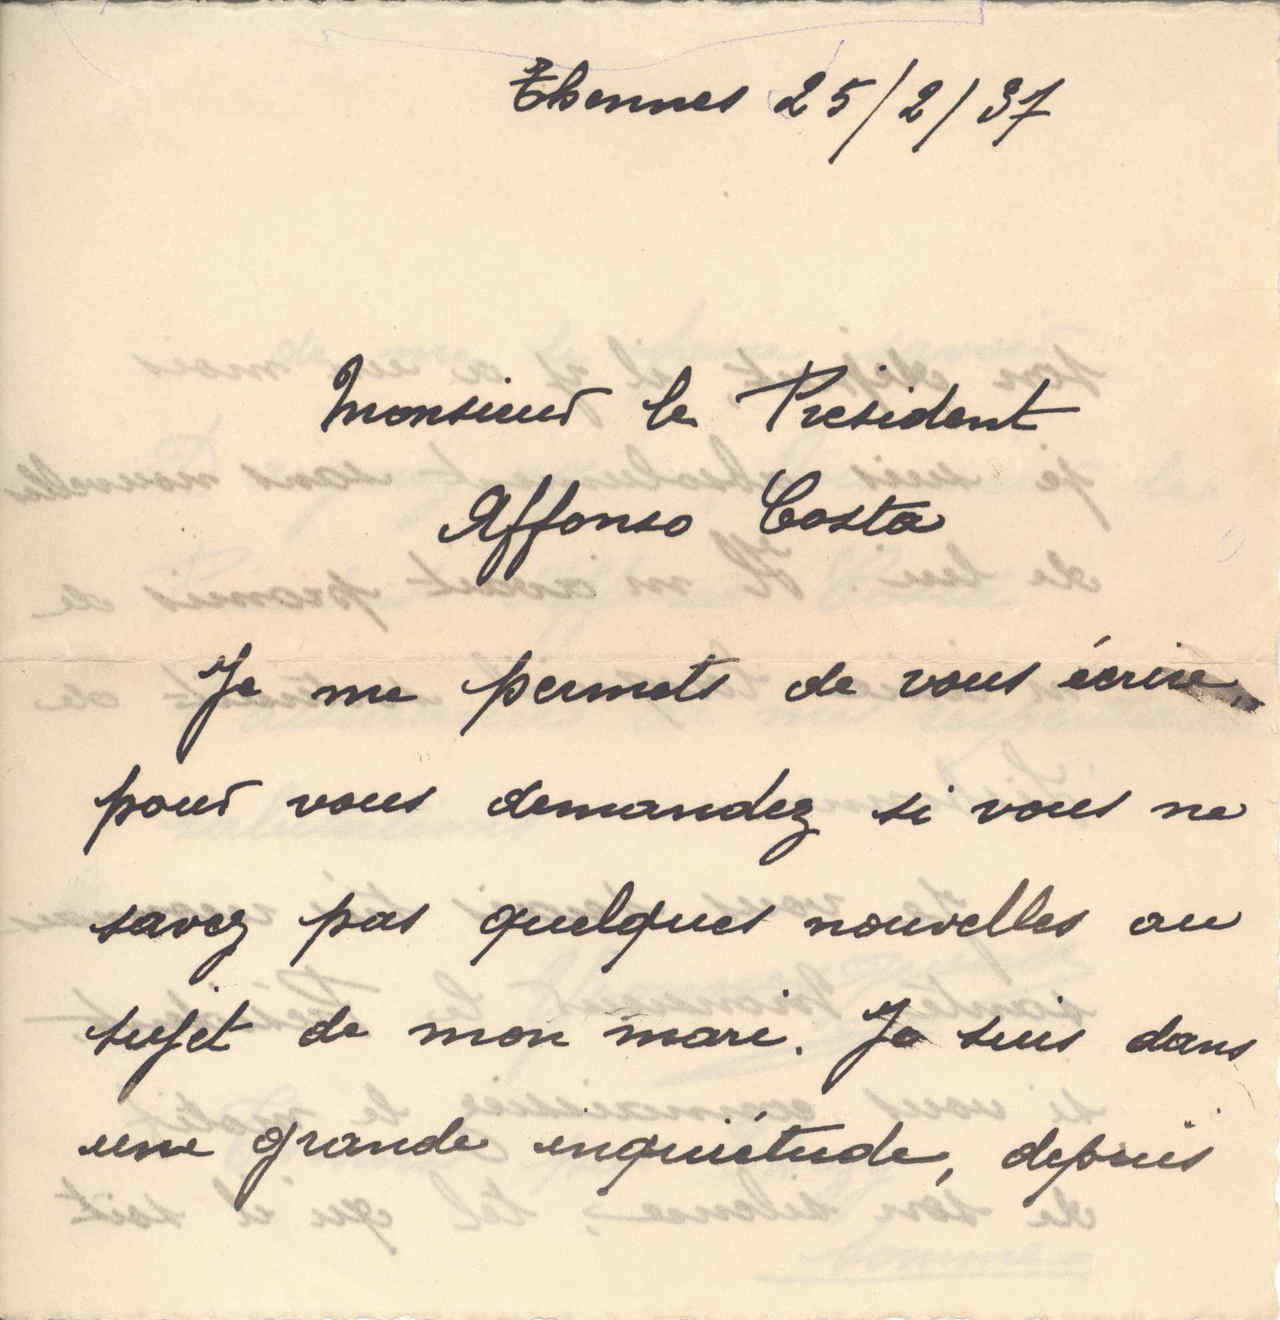 Thennes 25/2/37
Monsieur le President
Affonso Costa
Je me permets de vous écrire,
pour vous demandez si vous ne
savez pas quelques nouvelles au
sujet de mon mari. Je suis dans
une grande inquiétude, depuis